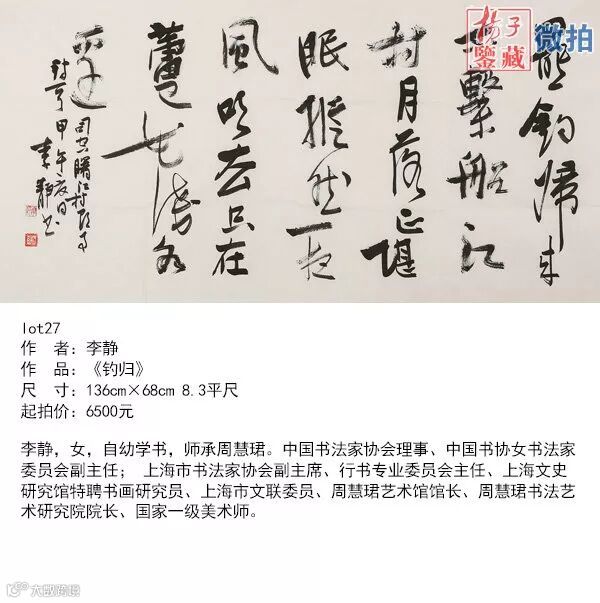 揚子
鑒藏
微拍
罷釣歸来
不繫船江
村月落正堪
眠縱然一夜
風吹去只在
蘆花淺水
邊
司空曙江村即事
甲午夏日
李静书
lot27
作 者：李静
作 品：《钓归》
尺 寸：136cm×68cm 8.3平尺
起拍价：6500元
李静，女，自幼学书，师承周慧珺。中国书法家协会理事、中国书协女书法家
委员会副主任； 上海市书法家协会副主席、行书专业委员会主任、上海文史
研究馆特聘书画研究员、上海市文联委员、周慧珺艺术馆馆长、周慧珺书法艺
术研究院院长、国家一级美术师。
大数跨境